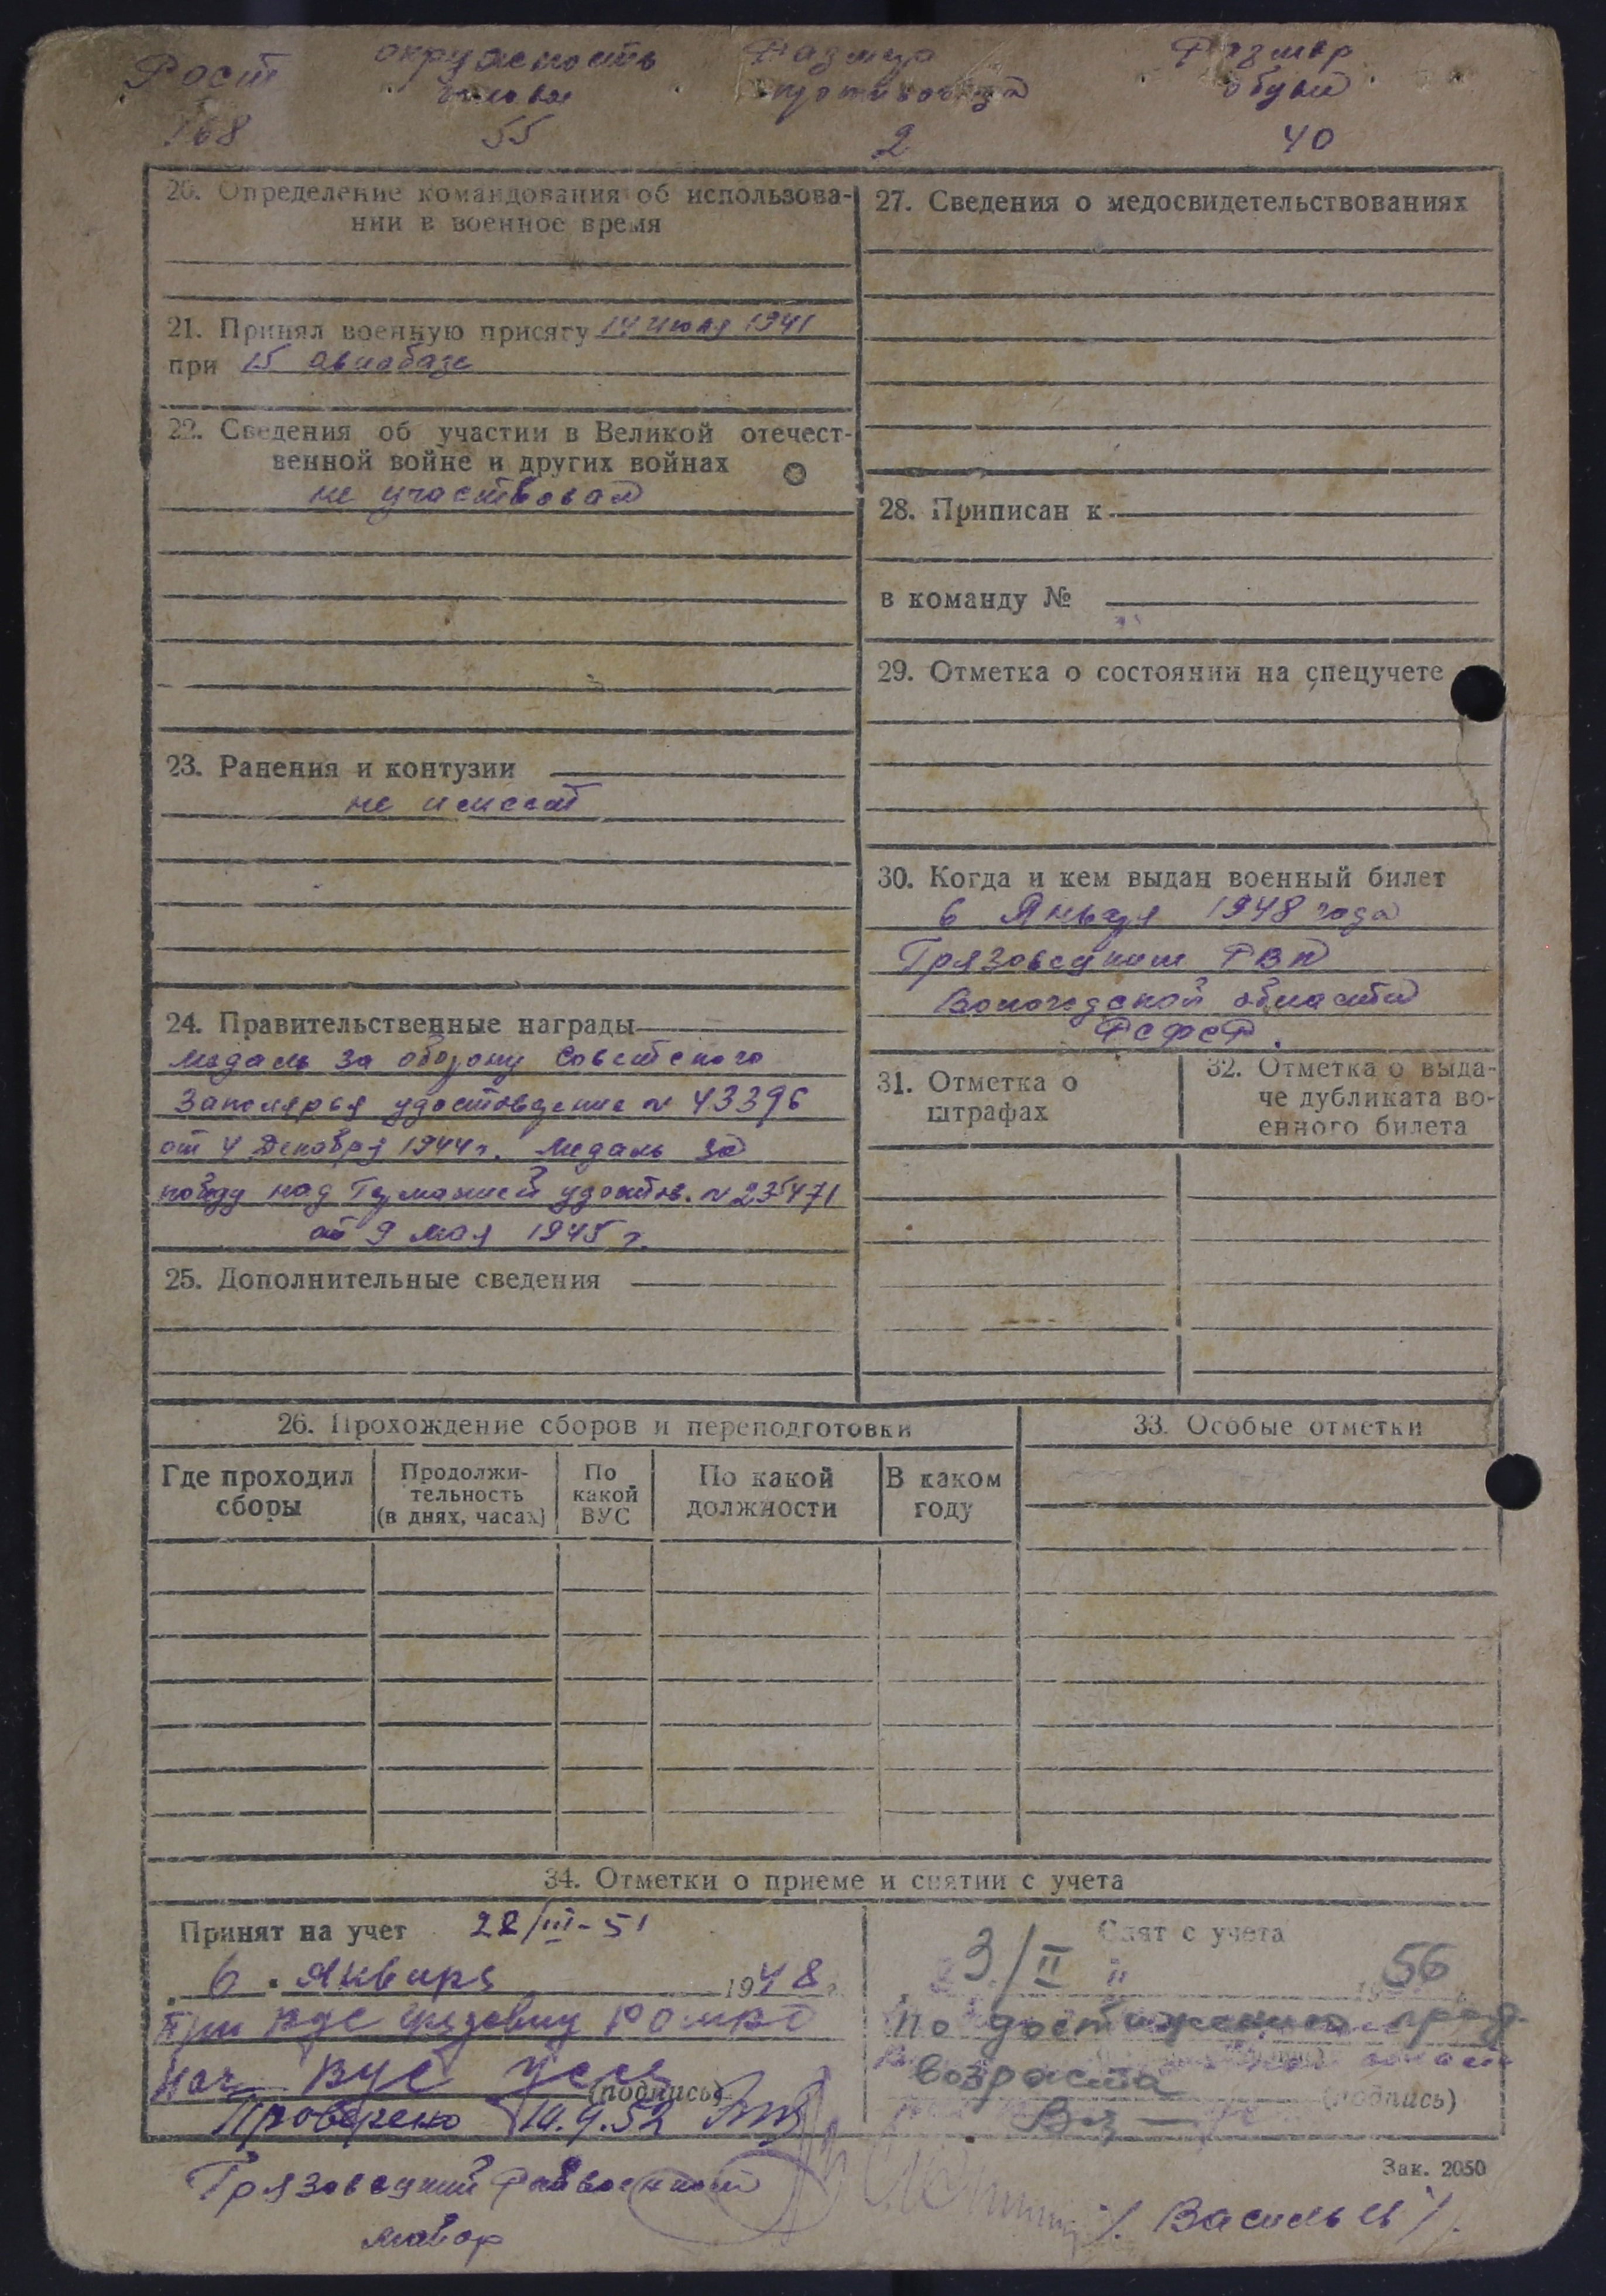 Рост окружность головы Размер противогаза Размер обуви
168 55 2 40
20. Определение командования об использова-
нии в военное время
21. Принял военную присягу 14 июля 1941
при 15 авиабазе
22. Сведения об участии в Великой отечест-
венной войне и других войнах
не участвовал
23. Ранения и контузии
не имеет
24. Правительственные награды
медаль за оборону Советского
Заполярья удостоверение № 43396
от 4 Декабря 1944 г. Медаль за
победу над Германией удостов. № 235471
от 9 мая 1945 г.
25. Дополнительные сведения
27. Сведения о медосвидетельствованиях
28. Приписан к
в команду №
29. Отметка о состоянии на спецучете
30. Когда и кем выдан военный билет
6 Января 1948 года
Грязовецким РВК
Вологодской области
РСФСР.
31. Отметка о
штрафах
32. Отметка о выда-
че дубликата во-
енного билета
26. Прохождение сборов и переподготовки
Где проходил
сборы
Продолжи-
тельность
(в днях, часах)
По
какой
ВУС
По какой
должности
В каком
году
33. Особые отметки
34. Отметки о приеме и снятии с учета
Принят на учет 22/III-51
6 . Января 1948 г.
При
нач ВУС
(подпись)
Проверено 10.9.52
Снят с учета
3/II " 1956
по достижению пред.
возраста
(подпись)
Зак. 2050
Грязовецкий Райвоенком
майор /Васильев/.